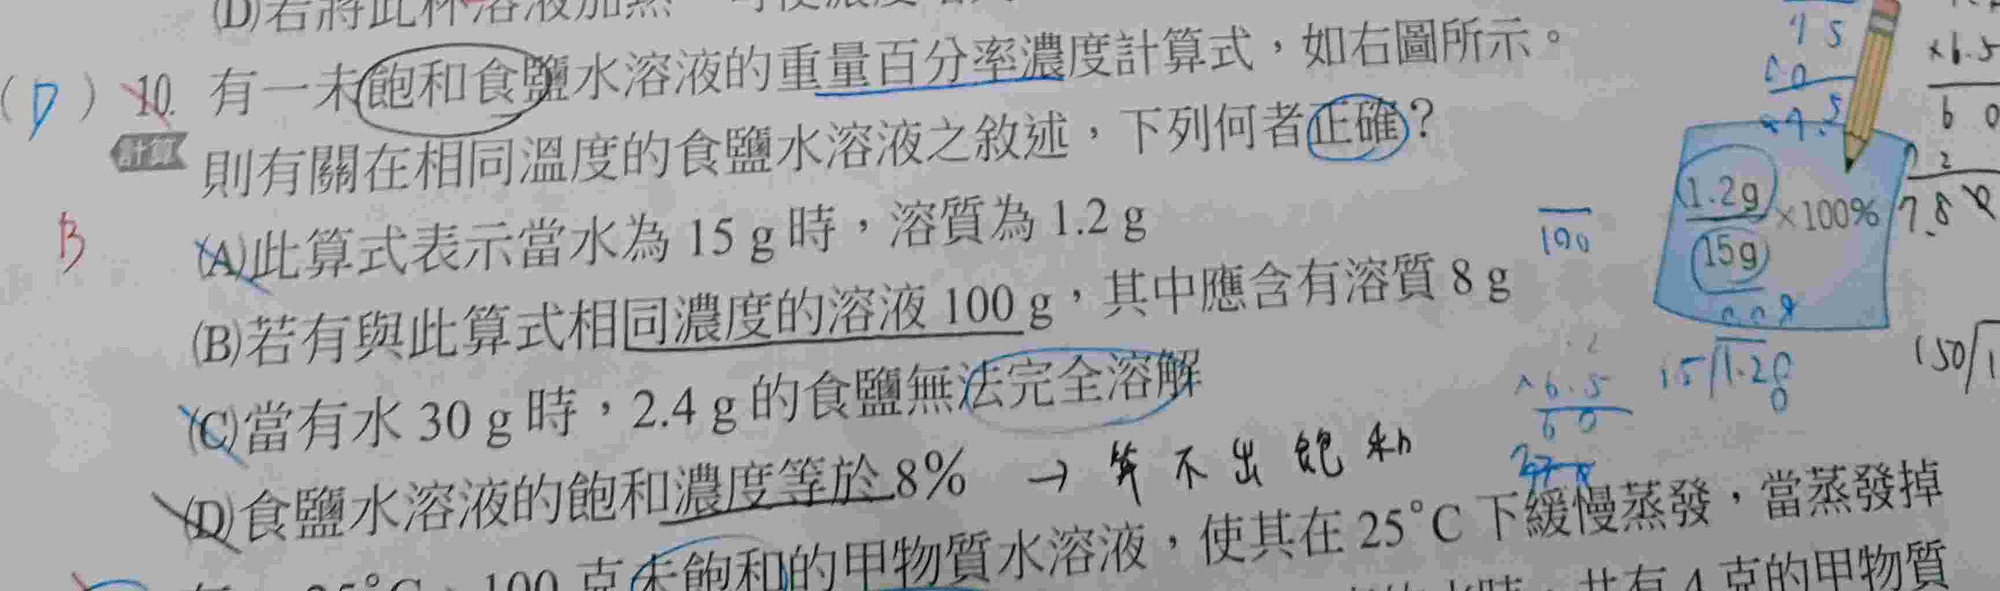 (D)若將此杯溶液加熱
(D) 10. 有一未飽和食鹽水溶液的重量百分率濃度計算式，如右圖所示。
計算
則有關在相同溫度的食鹽水溶液之敘述，下列何者正確？
B
(A)此算式表示當水為 15 g 時，溶質為 1.2 g
(B)若有與此算式相同濃度的溶液 100 g，其中應含有溶質 8 g
(C)當有水 30 g 時，2.4 g 的食鹽無法完全溶解
(D)食鹽水溶液的飽和濃度等於 8% → 算不出飽和
100 克未飽和的甲物質水溶液，使其在 25°C 下緩慢蒸發，當蒸發掉
共有 4 克的甲物質
1.2g
×100%
15g
100
×6.5
60
7.8
15 1.20
×6.5
60
150